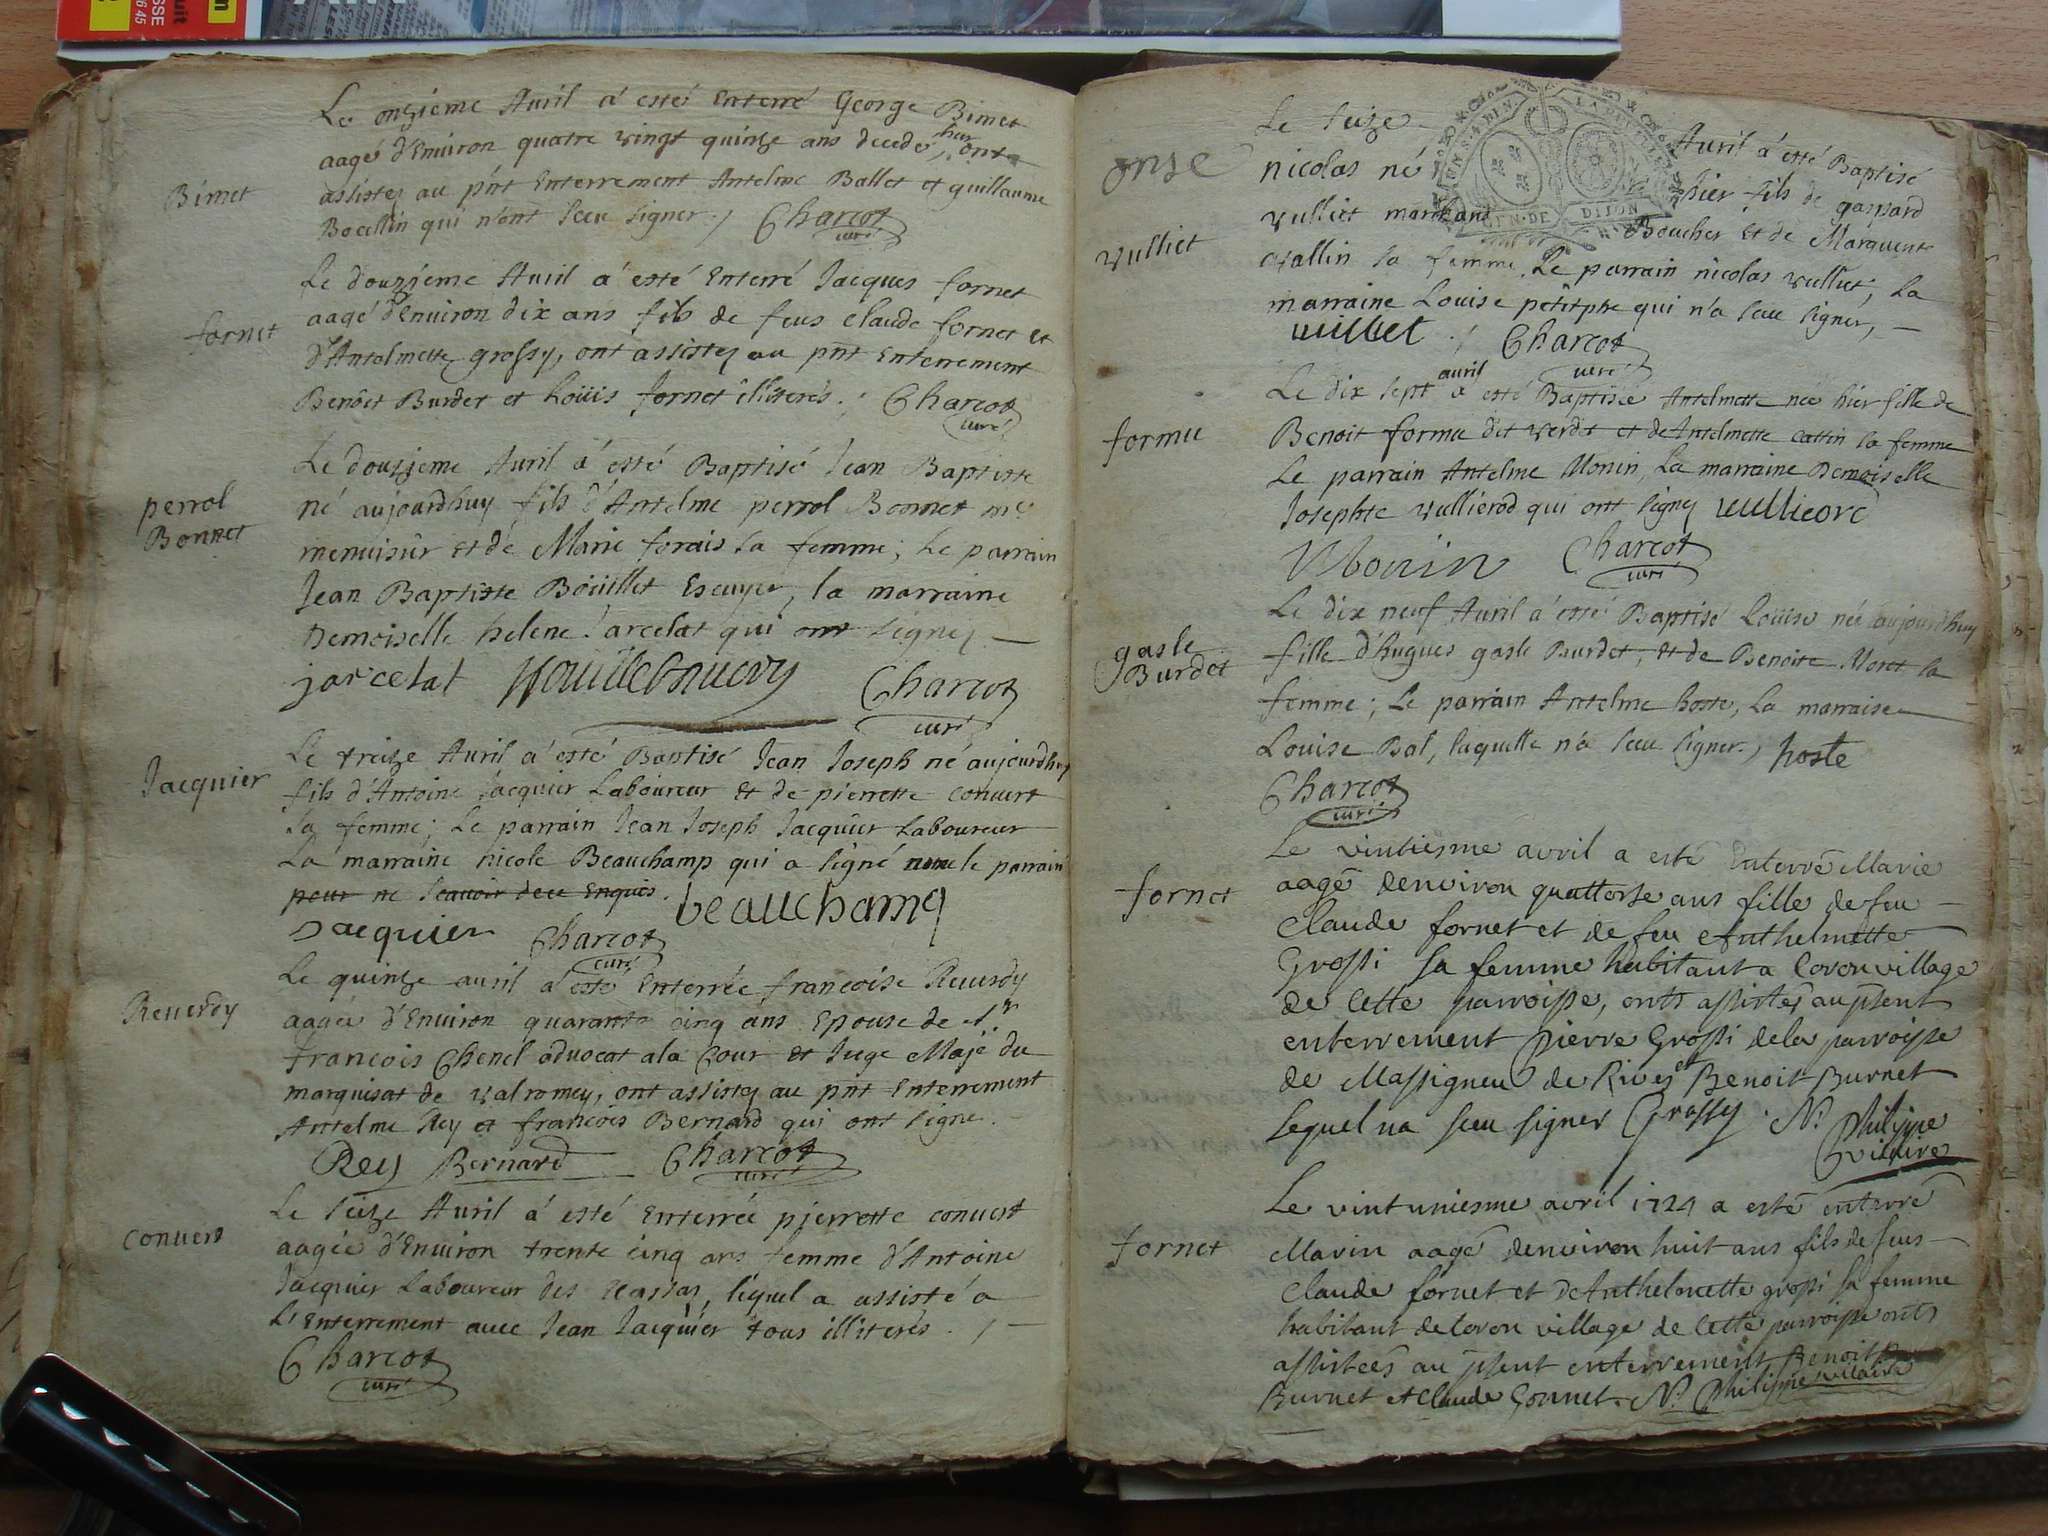 Bimet
Le onzieme Auril a esté Enterré George Bimet
aagé d'Enuiron quatre vingt quinze ans decedé hier, ont
assistez au pñt Enterrement Antelme Ballet et guillaume
qui n'ont sceu signer./ Charcot
curé
fornet
Le douzieme Auril a esté Enterré Jacques fornet
aagé d'Enuiron dix ans fils de feus Claude fornet et
d'Antelmette grossy, ont assistez au pñt Enterrement
Benoet Burdet et Loüis fornet illiterés. / Charcot
curé
perrol
Bonnet
Le douzieme Auril a esté Baptisé Jean Baptiste
né aujourdhuy fils d'Antelme perrol Bonnet me
menuisür et de Marie forais sa femme; Le parrain
Jean Baptiste Boüillet Escuyer, la marraine
Demoiselle helene Jarcelat qui ont signez
jarcelat Charcot
curé
Jacquier
Le treize Auril a esté Baptisé Jean Joseph né aujourdhuy
fils d'Antoine Jacquier Laboureur et de pierrette conuert
sa femme; Le parrain Jean Joseph Jacquier Laboureur
La marraine nicole Beauchamp qui a signé le parrain
peur ne sçauoir dece Enquis. beauchamp
Jacquier Charcot
curé
Reuerdy
Le quinze auril a esté Enterrée françoise Reuerdy
aagée d'Enuiron quarante cinq ans Epouse de sr
françois Chenel aduocat ala Cour et Juge Maje du
marquisat de valromey, ont assistez au pñt Enterrement
Antelme Rey et françois Bernard qui ont signe.
Rey Bernard Charcot
curé
conuert
Le seize Auril a esté Enterrée pierrette conuert
aagée d'Enuiron trente cinq ans femme d'Antoine
Jacquier Laboureur des lequel a assisté a
L'Enterrement auec Jean Jacquier tous illiterés. /
Charcot
curé
onse
vulliet
Le seize Auril a esté Baptisé
nicolas né hier fils de gaspard
vulliet marchant Boucher et de Marguerite
vallin sa femme, Le parrain nicolas vulliet, La
marraine Louise petitphe qui n'a sceu signer,
vuillet ./ Charcot
curé
GEN·DE DIJON
formu
Le dix sept auril a esté Baptisée Antelmette née hier fille de
Benoit formu dit verdet et de Antelmette cattin sa femme
Le parrain Antelme Monin, La marraine Demoiselle
Josephte vulliérod qui ont signez
Monin Charcot
curé
gasle
Burdet
Le dix neuf Auril a esté Baptisé Louise née aujourdhuy
fille d'hugues gasle Burdet, et de Benoite Moret sa
femme; Le parrain Antelme hoste, La marraine
Louise Bal, laquelle n'a sceu signer./ hoste
Charcot
curé
fornet
Le vintiesme avril a esté Enterré Marie
aagé denviron quattorse ans fille de feu
Claude fornet et de feu Anthelmette
Grossi sa femme habitant a Coron village
de Cette parroisse, onts assistés au pñsent
enterrement pierre Grossi dela parroisse
de Massigneu de Rives et Benoit Burnet
lequel na sceu signer Grossy. N. philippe
vicaire
fornet
Le vint uniesme avril 1724 a esté enterré
Marin aagé denviron huit ans fils de feus
Claude fornet et d'Anthelmette grossi sa femme
habitant de Coron village de Cette parroisse onts
assistées au pñsent enterrement Benoit
Burnet et Claude Gonnet. N. philippe vicaire